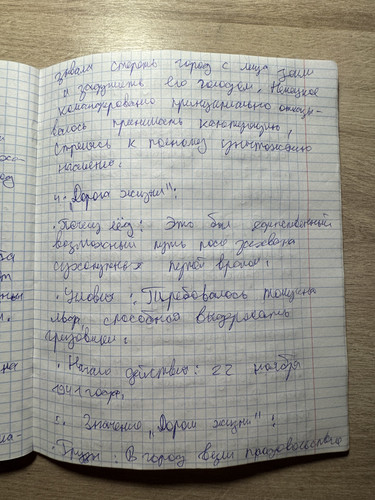 стереть город с лица земли
и задушить его голодом. Немецкое
командование принципиально отказы-
валось принимать капитуляцию,
стремясь к полному уничтожению
населения.
4. „Дорога жизни":
· Почему лёд: Это был единственный
возможный путь после
сухопутных
· Условия: Требовалось толщина
льда, способная выдержать
грузовики.
· Начало действия: 22 ноября
1941 года.
5. Значение „Дороги жизни":
· Грузы: В город везли продовольствие